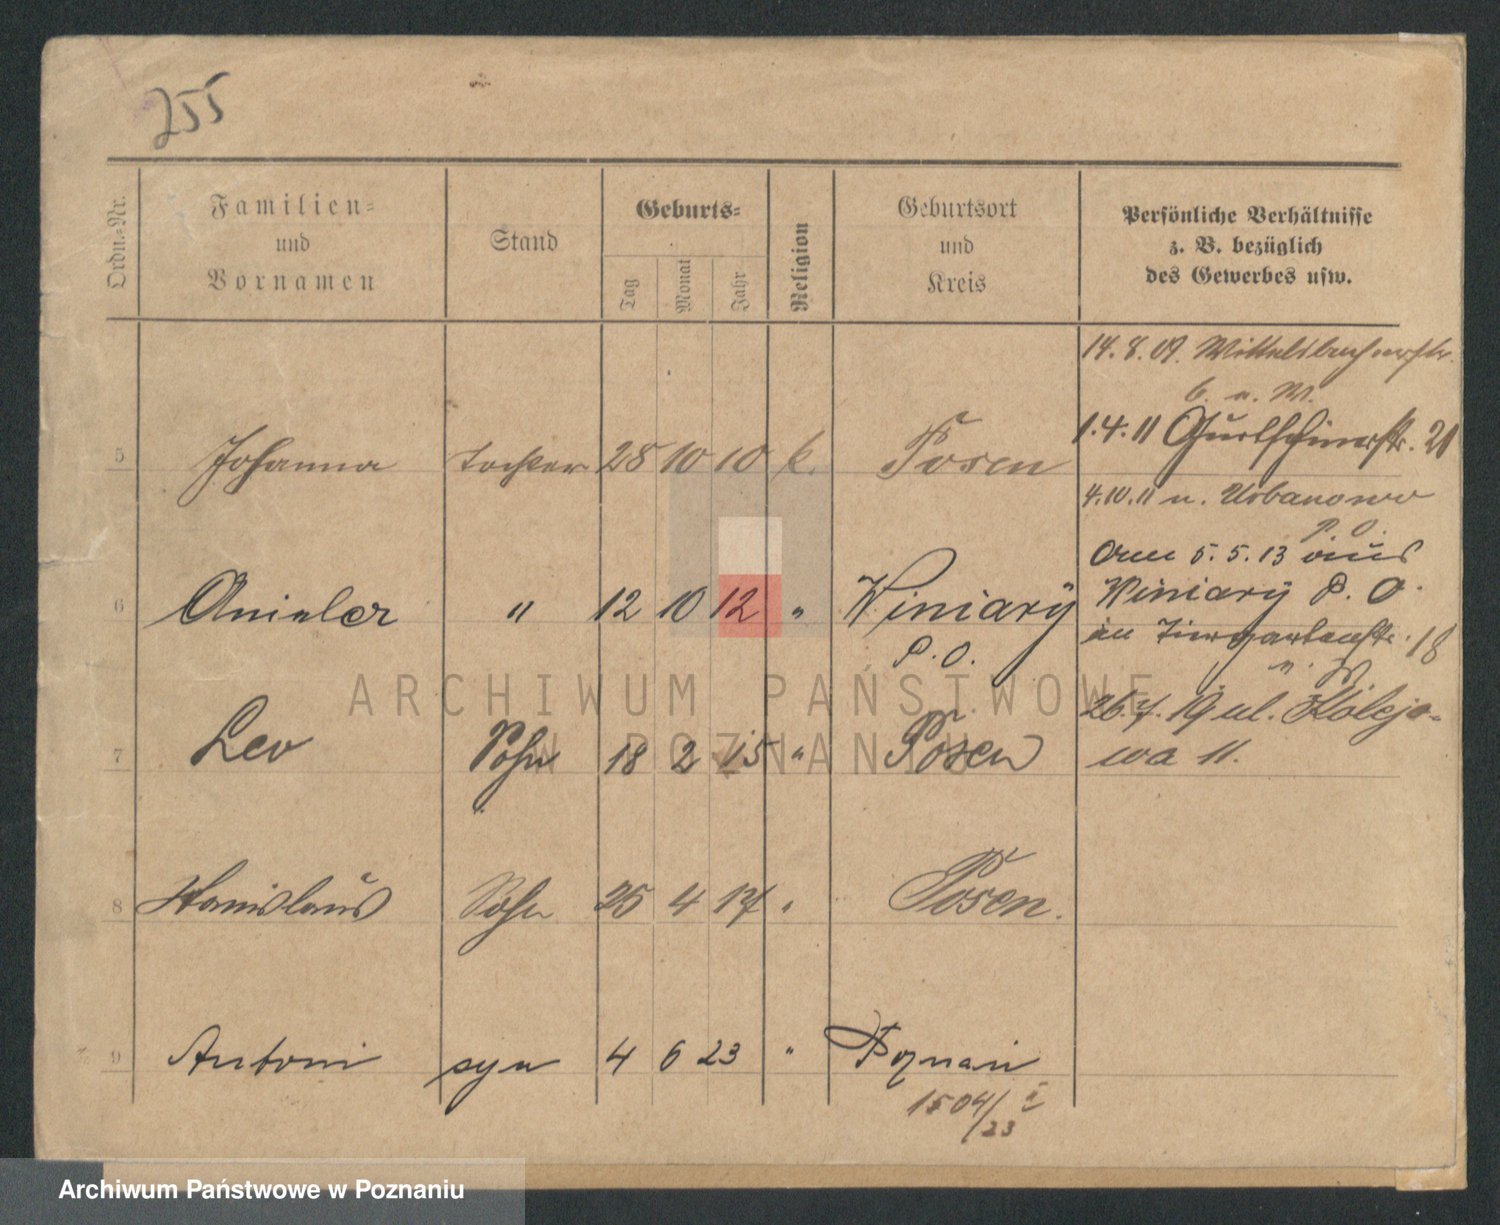 255
Ordn.=Nr.
Familien=
und
Vornamen
Stand
Geburts=
Tag
Monat
Jahr
Religion
Geburtsort
und
Kreis
Persönliche Verhältnisse
z. B. bezüglich
des Gewerbes usw.
14.8.09. Wittelsbacherstr.
b. n. W.
1.4.11 Gurtschinerstr. 21
5 Johanna Tochter 28 10 10 k. Posen
4.10.11 n. Urbanowo
P. O.
Am 5.5.13 aus
6 Aniela " 12 10 12 " Winiary Winiary P. O.
P. O.
in Tiergartenstr. 18
ARCHIWUM PAŃSTWOWE
W POZNANIU
26.7.19 ul. Kolejo-
7 Leo Sohn 18 2 15 " Posen wa 11.
8 Stanislaus Sohn 25 4 17 " Posen.
9 Antoni syn 4 6 23 " Poznań
1504/23 I
Archiwum Państwowe w Poznaniu